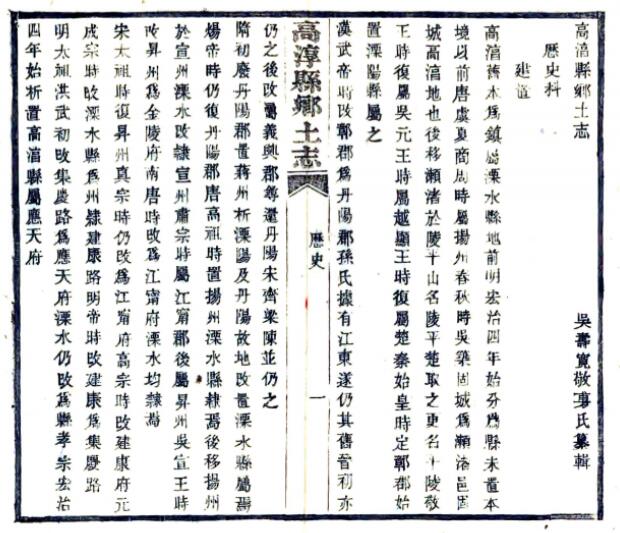 高淳縣鄉土志
吳壽寬敬專氏纂輯
歷史科
建置
高淳舊本爲鎭屬溧水縣地前明宏治四年始分爲縣未置本
境以前唐虞夏商周時屬揚州春秋時吳築固城爲瀨渚邑固
城高淳地也後移瀨渚於陵平山名陵平楚取之更名平陵敬
王時復屬吳元王時屬越顯王時復屬楚秦始皇時定鄣郡始
置溧陽縣屬之
漢武帝時改鄣郡爲丹陽郡孫氏據有江東遂仍其舊晉初亦
高淳縣鄉土志
歷史
一
仍之後改屬義興郡尋還丹陽宋齊梁陳並仍之
隋初廢丹陽郡置蔣州析溧陽及丹陽故地改置溧水縣屬焉
煬帝時仍復丹陽郡唐高祖時置揚州溧水縣隸焉後移揚州
於宣州溧水改隸宣州肅宗時屬江甯郡後屬昇州吳宣王時
改昇州爲金陵府南唐時改爲江甯府溧水均隸焉
宋太祖時復昇州真宗時仍改爲江甯府高宗時改建康府元
成宗時改溧水縣爲州隸建康路明帝時改建康爲集慶路
明太祖洪武初改集慶路爲應天府溧水仍改爲縣孝宗宏治
四年始析置高淳縣屬應天府